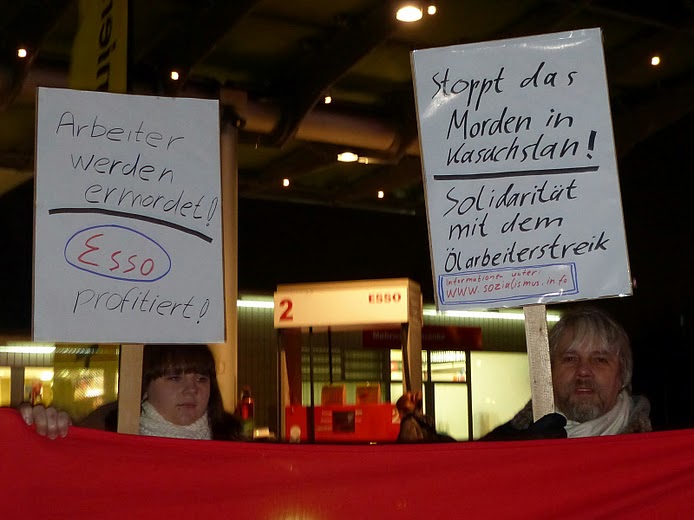 Arbeiter
werden
ermordet!
Esso
profitiert!
Stoppt das
Morden in
Kasachstan!
Solidarität
mit dem
Ölarbeiterstreik
Informationen unter
www.sozialismus.info
2 ESSO